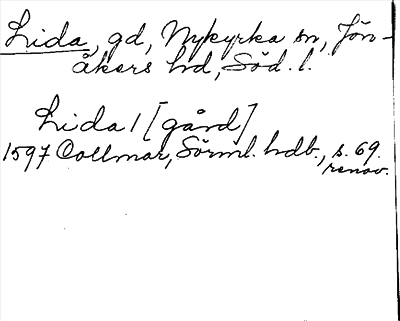 Lida, gd, Nykyrka sn, Jön-
åkers hd, Söd. l.
Lida 1 [gård]
1597 Collmar, Sörml. hdb., s. 69.
renov.